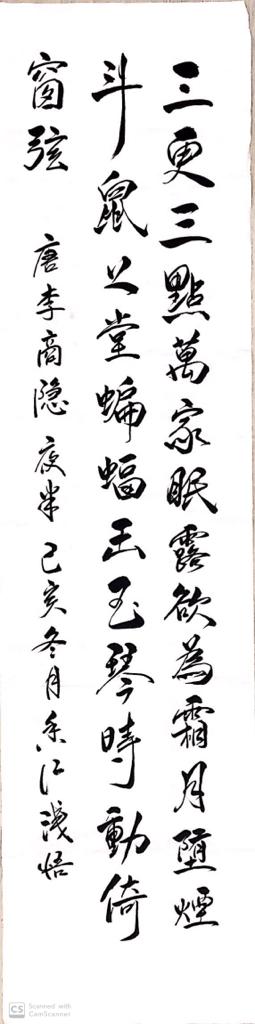 三更三點萬家眠露欲為霜月墮煙
斗鼠上堂蝙蝠出玉琴時動倚
窗弦 唐李商隐夜半 己亥冬月香江淺悟
CS Scanned with
CamScanner